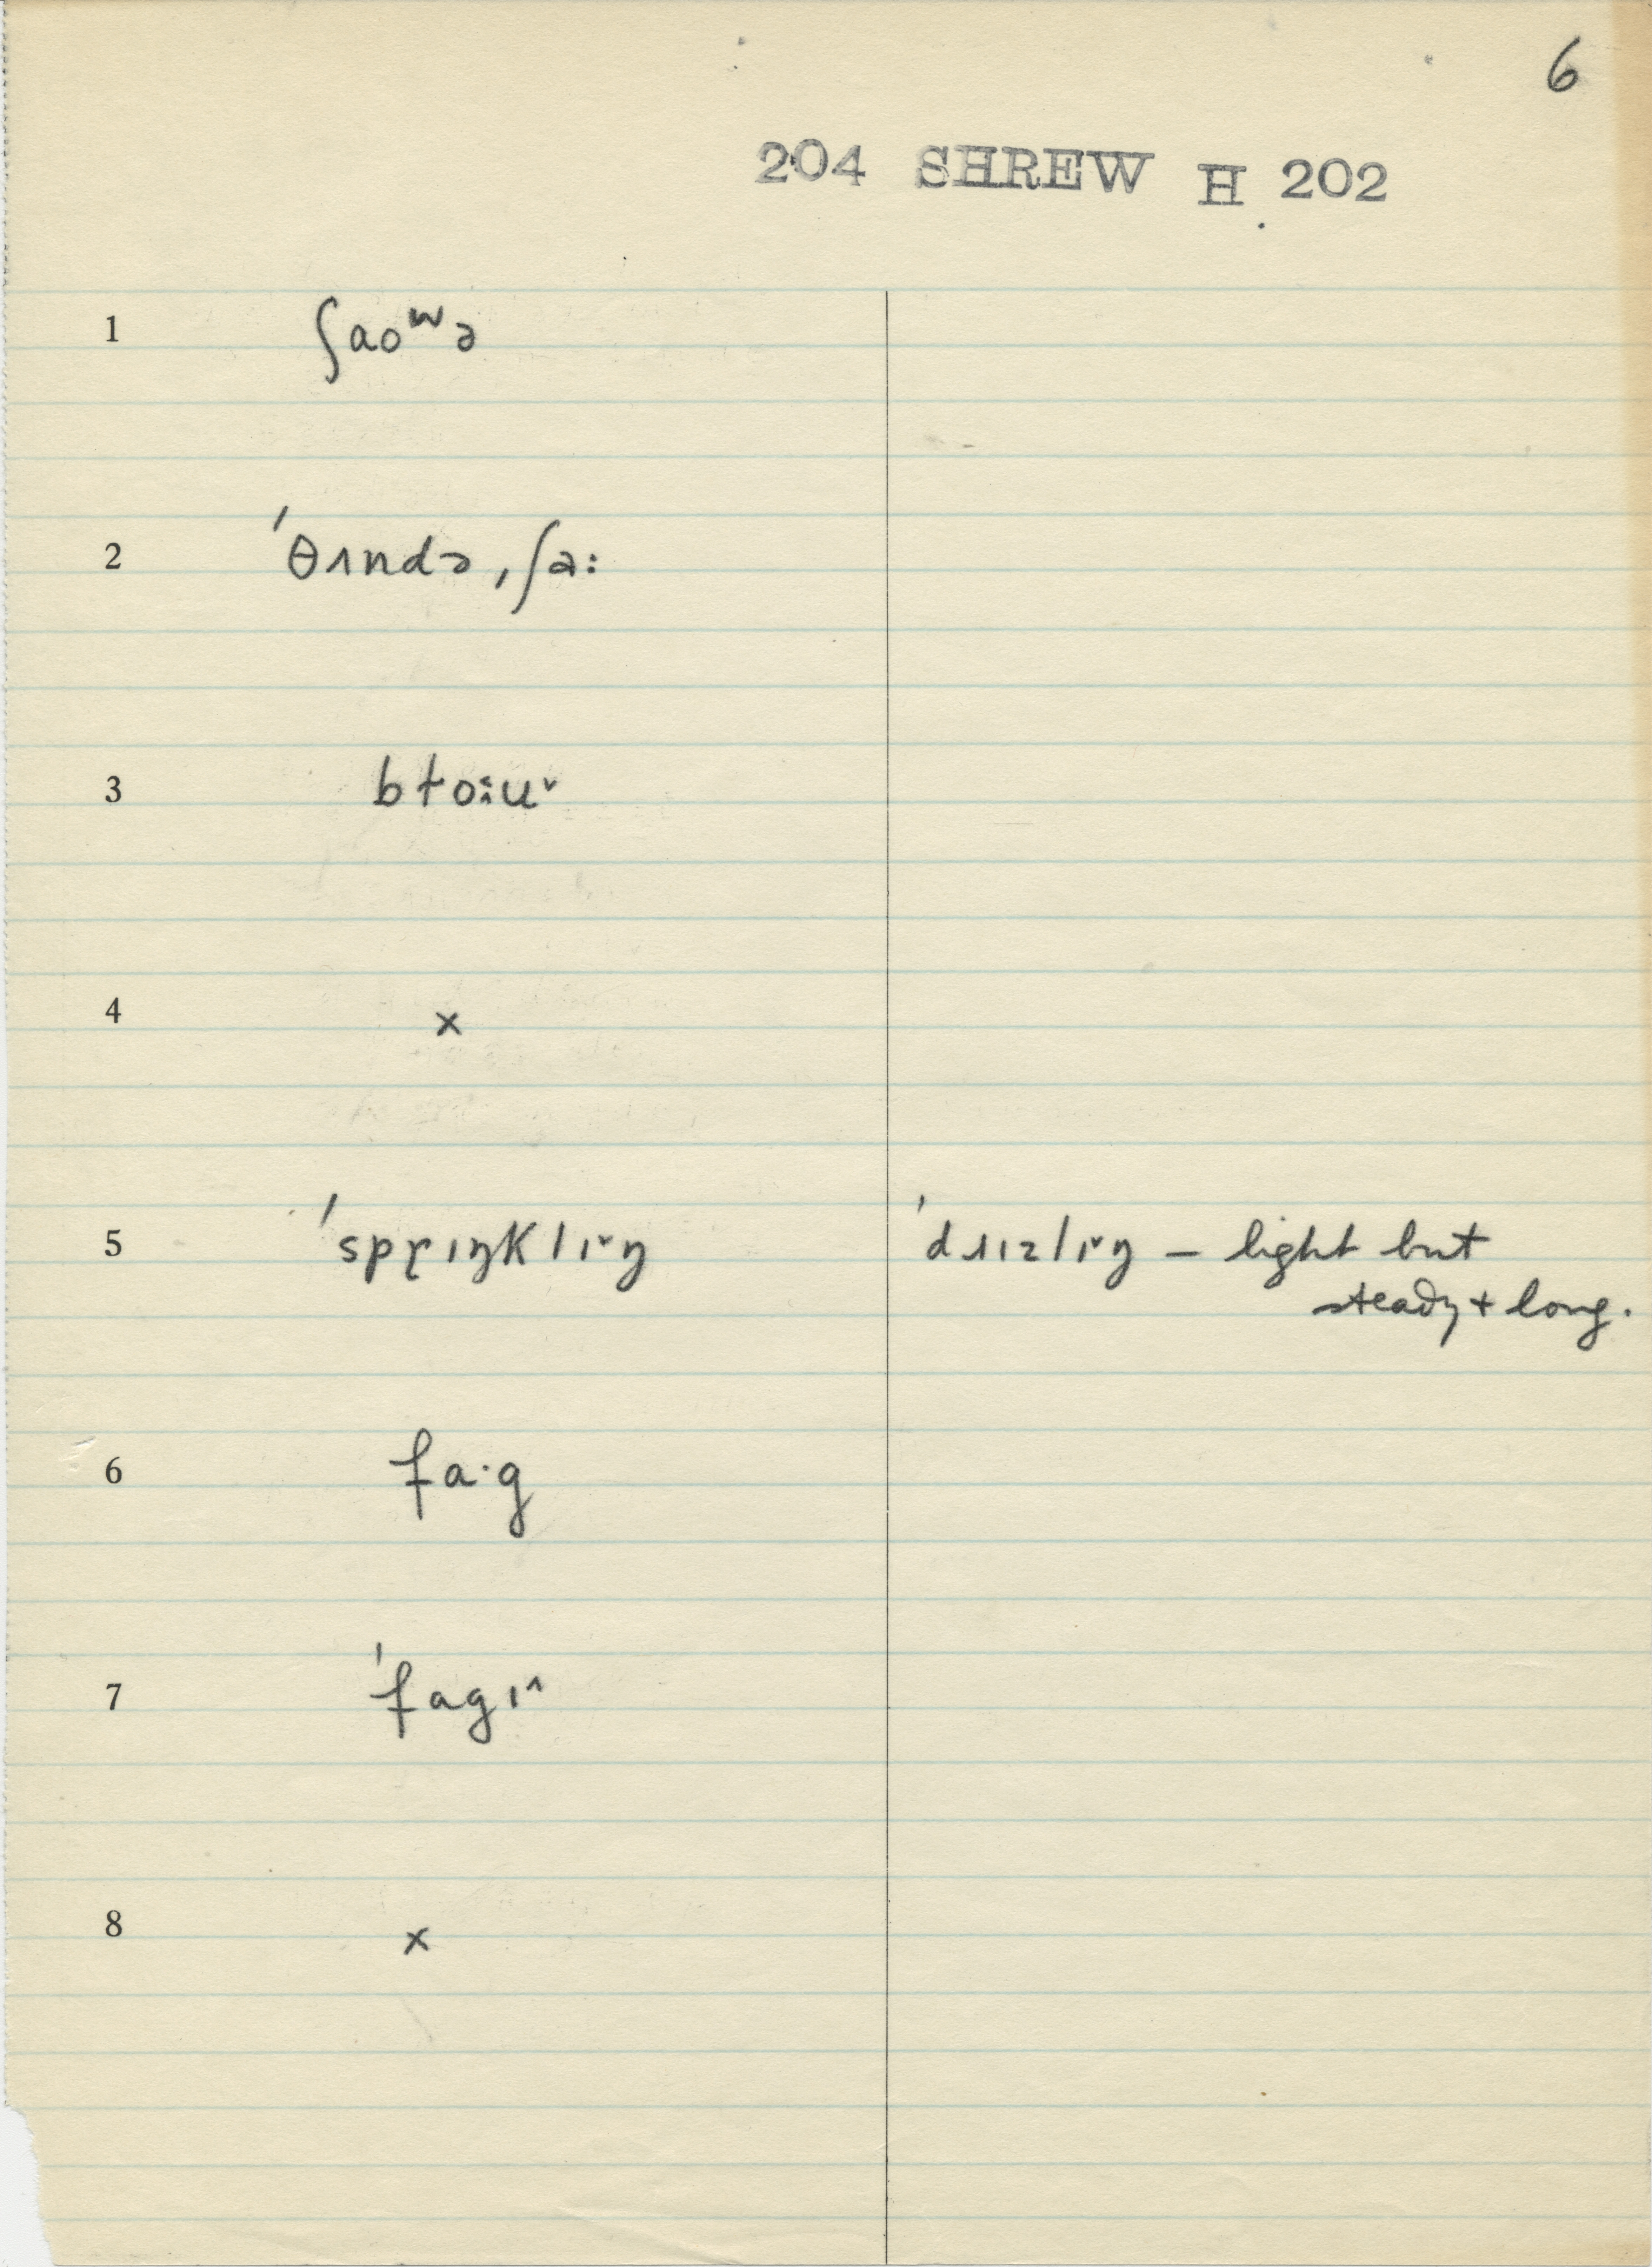 6
204 SHREW H 202
1 ʃaoʷə
2 ˈθʌndə ˌʃa:
3 bɫo:u˅
4 x
5 ˈsprɪŋklɪ˅ŋ ˈdɹɪzlɪ˅ŋ – light but
steady + long.
6 fa·g
7 ˈfagɪ^
8 x